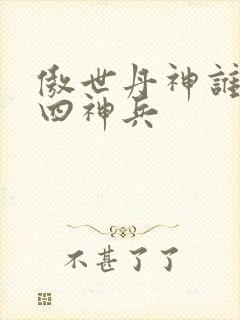 傲世丹神誰
四神兵
不甚了了